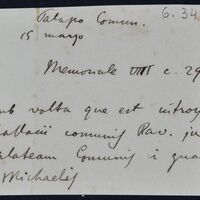 6.34
Palazzo Comun.
15 marzo
Memoriale VIII c. 29
sub volta que est introy
Palatii comunis Rav. ju
plateam Comunis i qua
Michaelis